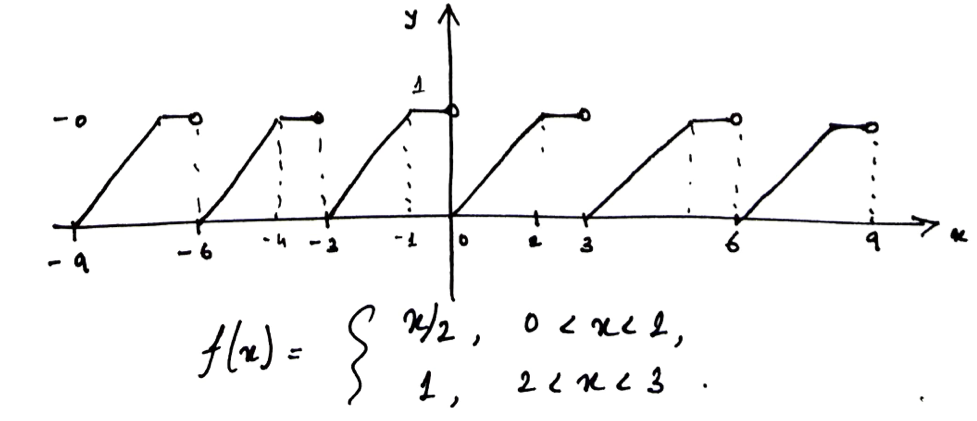 y
1
-9 -6 -4 -3 -1 0 2 3 6 9 x
f(x) = { x/2 , 0 < x < 2 ,
1 , 2 < x < 3 .